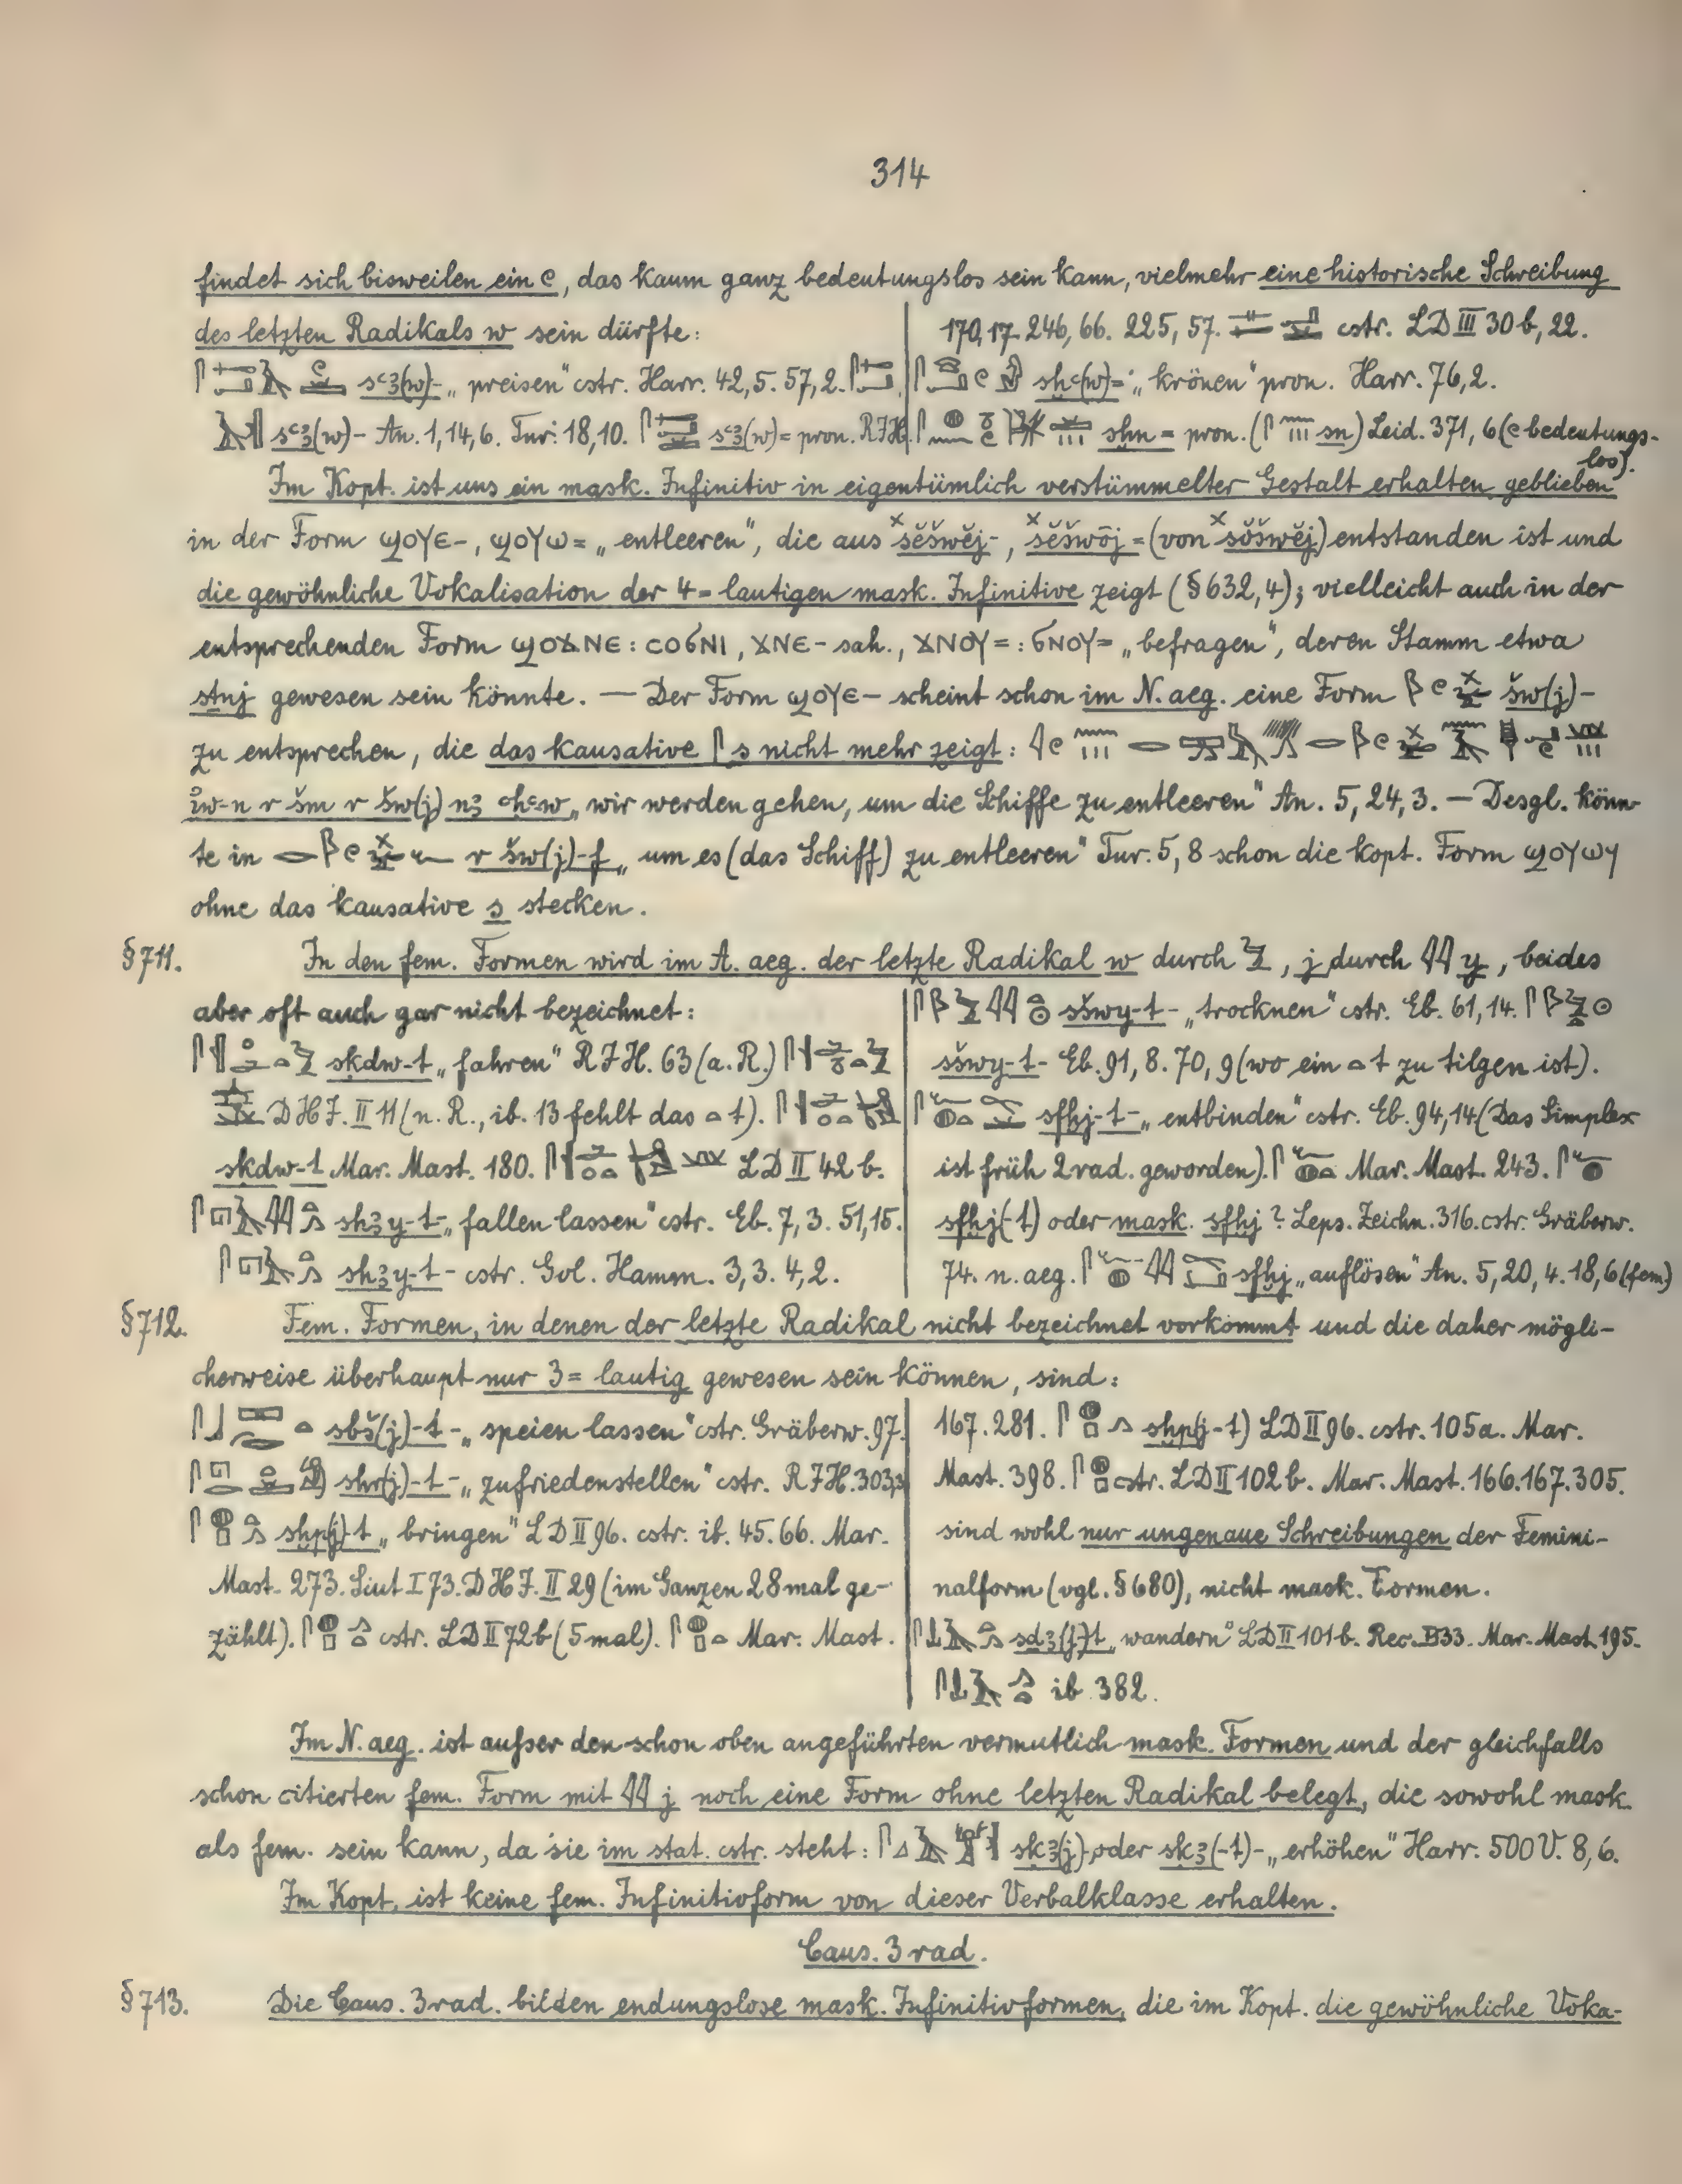 314
findet sich bisweilen ein 𓏲, das kaum ganz bedeutungslos sein kann, vielmehr eine historische Schreibung
des letzten Radikals w sein dürfte:
sꜥꜣ(w)- „preisen“ cstr. Harr. 42,5. 57,2.
sꜥꜣ(w)- An. 1,14,6. Tur. 18,10. sꜥꜣ(w)= pron. RJH.
170,17. 246,66. 225,57. cstr. LD III 30b, 22.
sḫꜥ(w)= „krönen“ pron. Harr. 76,2.
shn= pron. (sn) Leid. 371, 6 (𓏲 bedeutungs-
los).
Im Kopt. ist uns ein mask. Infinitiv in eigentümlich verstümmelter Gestalt erhalten geblieben
in der Form ϣⲟⲩⲉ-, ϣⲟⲩⲱ= „entleeren“, die aus ˣšĕšwĕj-, ˣšĕšwōj= (von ˣšŏšwĕj) entstanden ist und
die gewöhnliche Vokalisation der 4=lautigen mask. Infinitive zeigt (§632,4); vielleicht auch in der
entsprechenden Form ϣⲟϫⲛⲉ : ⲥⲟϭⲛⲓ, ϫⲛⲉ- sah., ϫⲛⲟⲩ= : ϭⲛⲟⲩ= „befragen“, deren Stamm etwa
stnj gewesen sein könnte. — Der Form ϣⲟⲩⲉ- scheint schon im N. aeg. eine Form šw(j)-
zu entsprechen, die das kausative 𓋴 s nicht mehr zeigt:
iw-n r šm r šw(j) nꜣ ꜥḥꜥw „wir werden gehen, um die Schiffe zu entleeren“ An. 5, 24, 3. — Desgl. könn-
te in r šw(j)-f „um es (das Schiff) zu entleeren“ Tur. 5, 8 schon die kopt. Form ϣⲟⲩⲱϥ
ohne das kausative s stecken.
§711. In den fem. Formen wird im A. aeg. der letzte Radikal w durch 𓅱, j durch 𓇌 y, beides
aber oft auch gar nicht bezeichnet:
skdw-t „fahren“ RJH. 63 (a. R.)
DHJ. II 11 (n. R., ib. 13 fehlt das 𓏏 t).
skdw-t Mar. Mast. 180. LD II 42 b.
shꜣy-t- „fallen lassen“ cstr. Eb. 7, 3. 51, 15.
shꜣy-t- cstr. Gol. Hamm. 3,3. 4,2.
sšwy-t- „trocknen“ cstr. Eb. 61, 14.
sšwy-t- Eb. 91, 8. 70, 9 (wo ein 𓏏 t zu tilgen ist).
sfḫj-t- „entbinden“ cstr. Eb. 94, 14 (Das Simplex
ist früh 2rad. geworden). Mar. Mast. 243.
sfḫj(-t) oder mask. sfḫj? Leps. Zeichn. 316. cstr. Gräberw.
74. n. aeg. sfḫj „auflösen“ An. 5, 20, 4. 18, 6 (fem.)
§712. Fem. Formen, in denen der letzte Radikal nicht bezeichnet vorkommt und die daher mögli-
cherweise überhaupt nur 3=lautig gewesen sein können, sind:
sbš(j)-t- „speien lassen“ cstr. Gräberw. 97.
shr(j)-t- „zufriedenstellen“ cstr. RJH. 303,3
sḫp(j)-t „bringen“ LD II 96. cstr. ib. 45. 66. Mar.
Mast. 273. Siut I 73. DHJ. II 29 (im Ganzen 28 mal ge-
zählt). cstr. LD II 72b (5 mal). Mar. Mast.
167. 281. sḫp(j-t) LD II 96. cstr. 105a. Mar.
Mast. 398. cstr. LD II 102 b. Mar. Mast. 166. 167. 305.
sind wohl nur ungenaue Schreibungen der Femini-
nalform (vgl. §680), nicht mask. Formen.
sdꜣ(j)-t „wandern“ LD II 101 b. Rec. 33. Mar. Mast. 195.
ib. 382.
Im N. aeg. ist außer den schon oben angeführten vermutlich mask. Formen und der gleichfalls
schon citierten fem. Form mit 𓇌 j noch eine Form ohne letzten Radikal belegt, die sowohl mask.
als fem. sein kann, da sie im stat. cstr. steht: skꜣ(j)- oder skꜣ(-t)- „erhöhen“ Harr. 500 V. 8, 6.
Im Kopt. ist keine fem. Infinitivform von dieser Verbalklasse erhalten.
Caus. 3 rad.
§713. Die Caus. 3rad. bilden endungslose mask. Infinitivformen, die im Kopt. die gewöhnliche Voka-